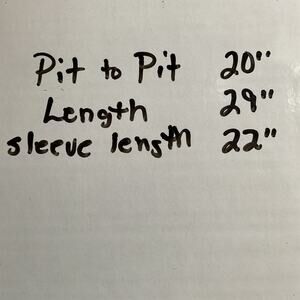 Pit to Pit 20"
Length 29"
sleeve length 22"